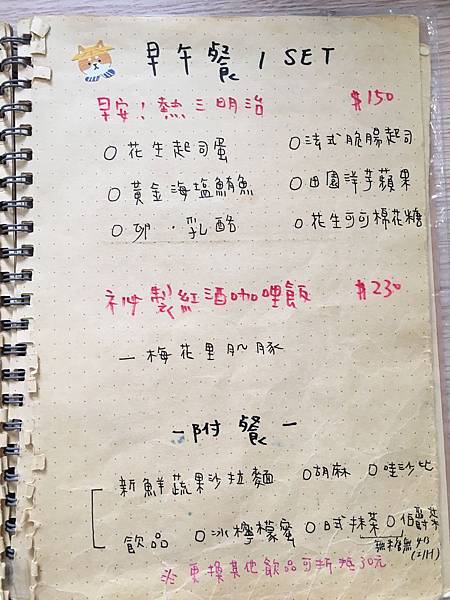 早午餐 / SET
早安!熱三明治 $150
○花生起司蛋 ○法式脆腸起司
○黃金海塩鮪魚 ○田園洋芋蘋果
○卵・乳酪 ○花生可可棉花糖
祕製紅酒咖哩飯 $230
—梅花里肌豚
-附餐-
新鮮蔬果沙拉麵 ○胡麻 ○哇沙比
飲品 ○冰檸檬蜜 ○日式抹茶 ○伯爵茶
※更換其他飲品可折抵30元